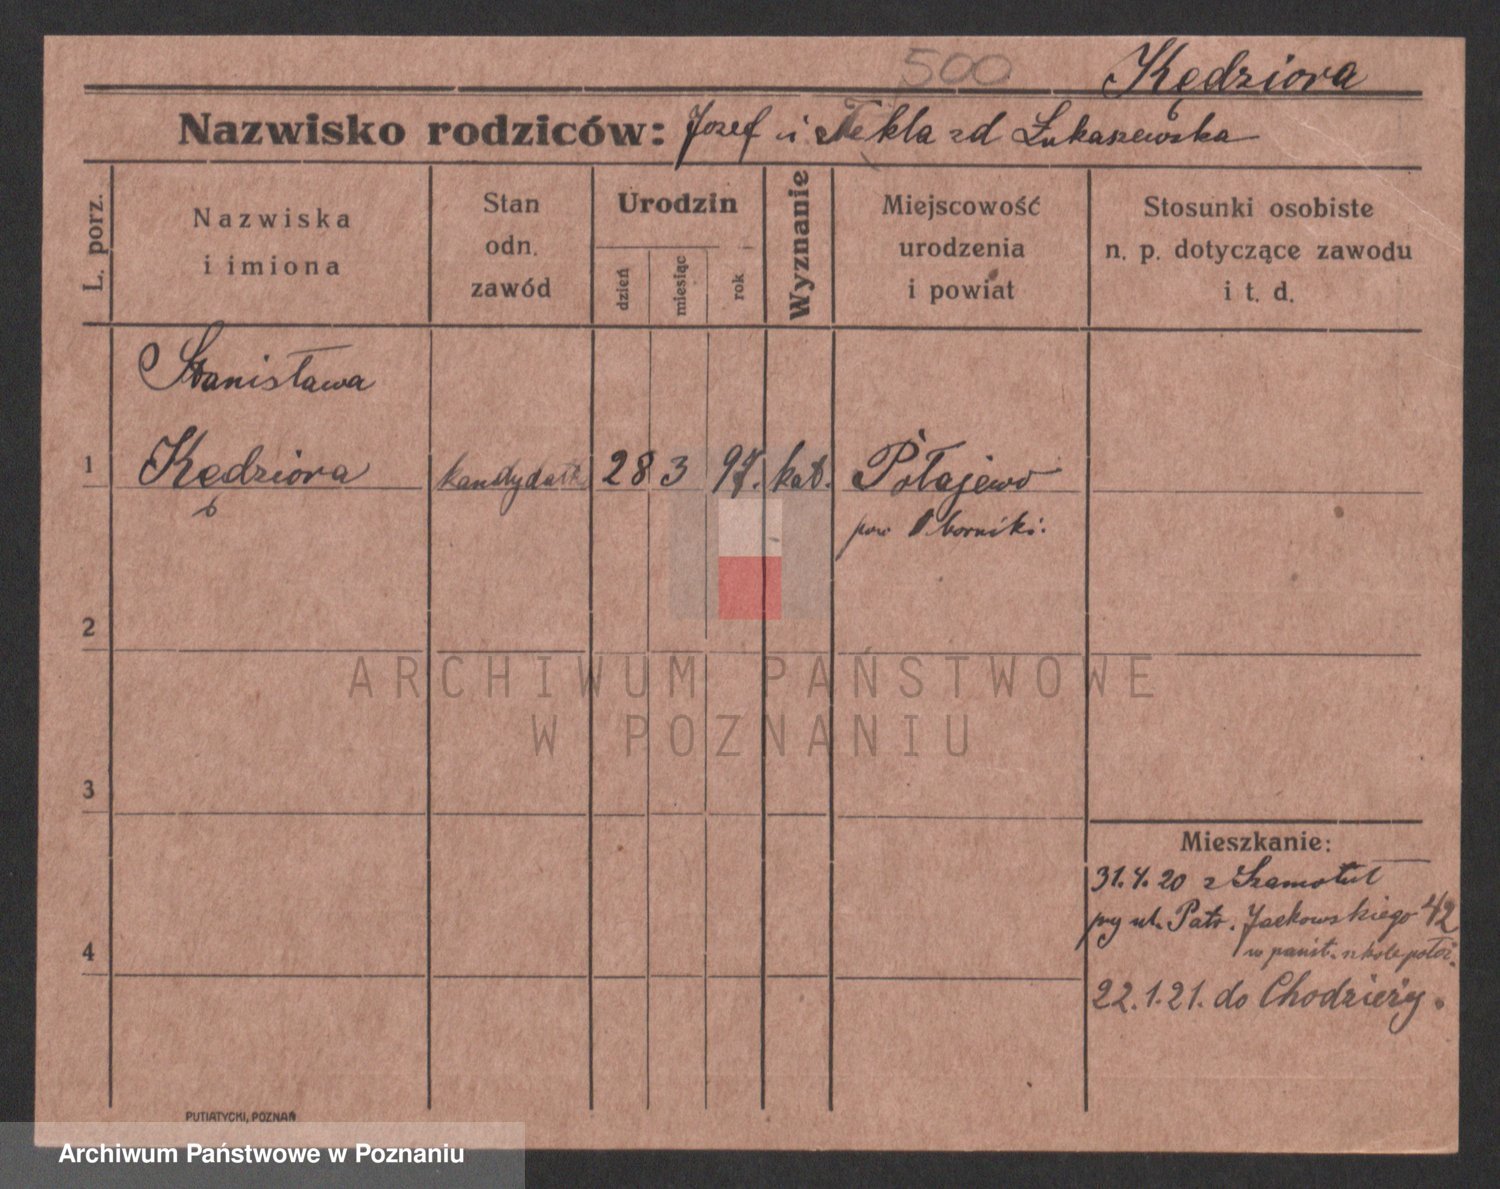 500 Kędziora
Nazwisko rodziców: Józef i Tekla zd Łukaszewska
L. porz.
Nazwiska
i imiona
Stan
odn.
zawód
Urodzin
dzień
miesiąc
rok
Wyznanie
Miejscowość
urodzenia
i powiat
Stosunki osobiste
n. p. dotyczące zawodu
i t. d.
Stanisława
1 Kędziora kandydatk. 28 3 97. kat. Połajewo
pow Oborniki.
2
3
4
Mieszkanie:
31.4.20 z Szamotuł
przy ul. Patr. Jackowskiego 42
w szkole położ.
22.1.21. do Chodzieży.
PUTIATYCKI, POZNAŃ
ARCHIWUM PAŃSTWOWE
W POZNANIU
Archiwum Państwowe w Poznaniu